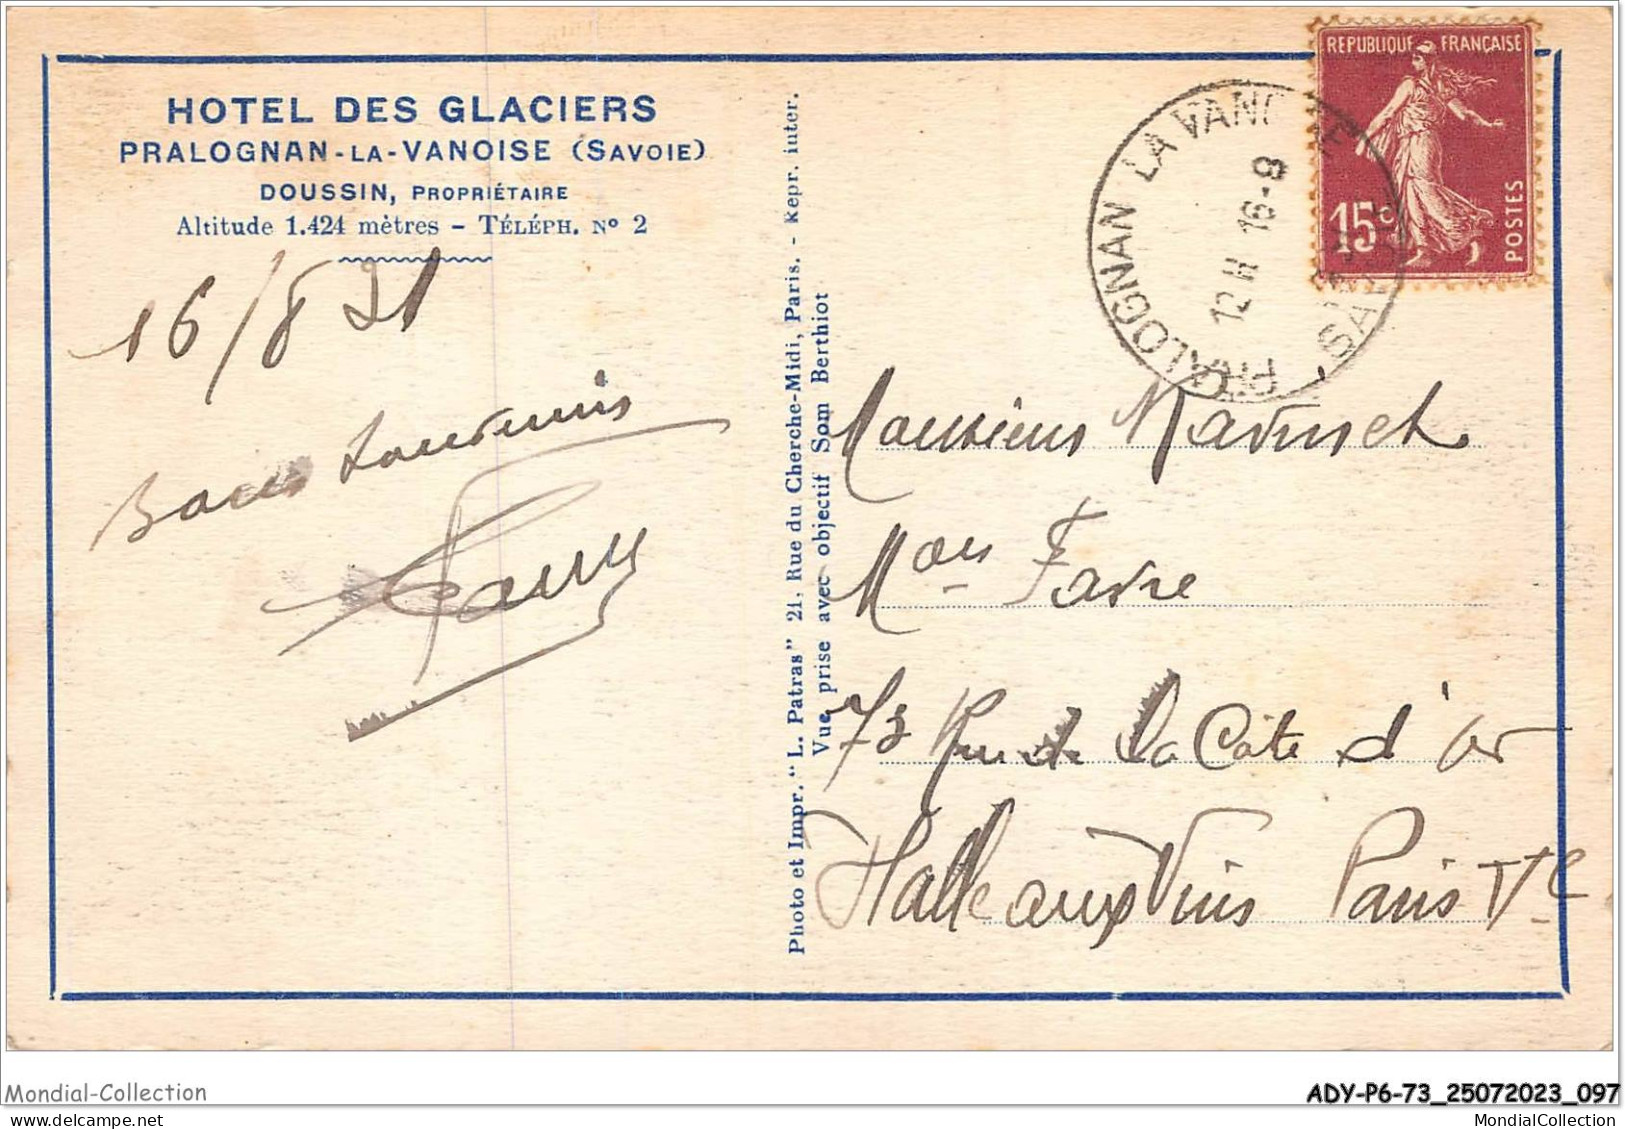 HOTEL DES GLACIERS
PRALOGNAN-LA-VANOISE (SAVOIE)
DOUSSIN, PROPRIÉTAIRE
Altitude 1.424 mètres - TÉLÉPH. Nº 2
16/8
Bons Souvenirs
Photo et Impr. "L. Patras" 21, Rue du Cherche-Midi, Paris. - Repr. inter.
Vue prise avec objectif Som Berthiot
REPUBLIQUE FRANÇAISE
15c
POSTES
PRALOGNAN LA VANOISE
12 H 16-8
SAVOIE
Monsieur
Mon Favre
73 Rue de la Côte d'Or
Halle aux Vins Paris Ve
Mondial-Collection
ADY-P6-73_25072023_097
MondialCollection